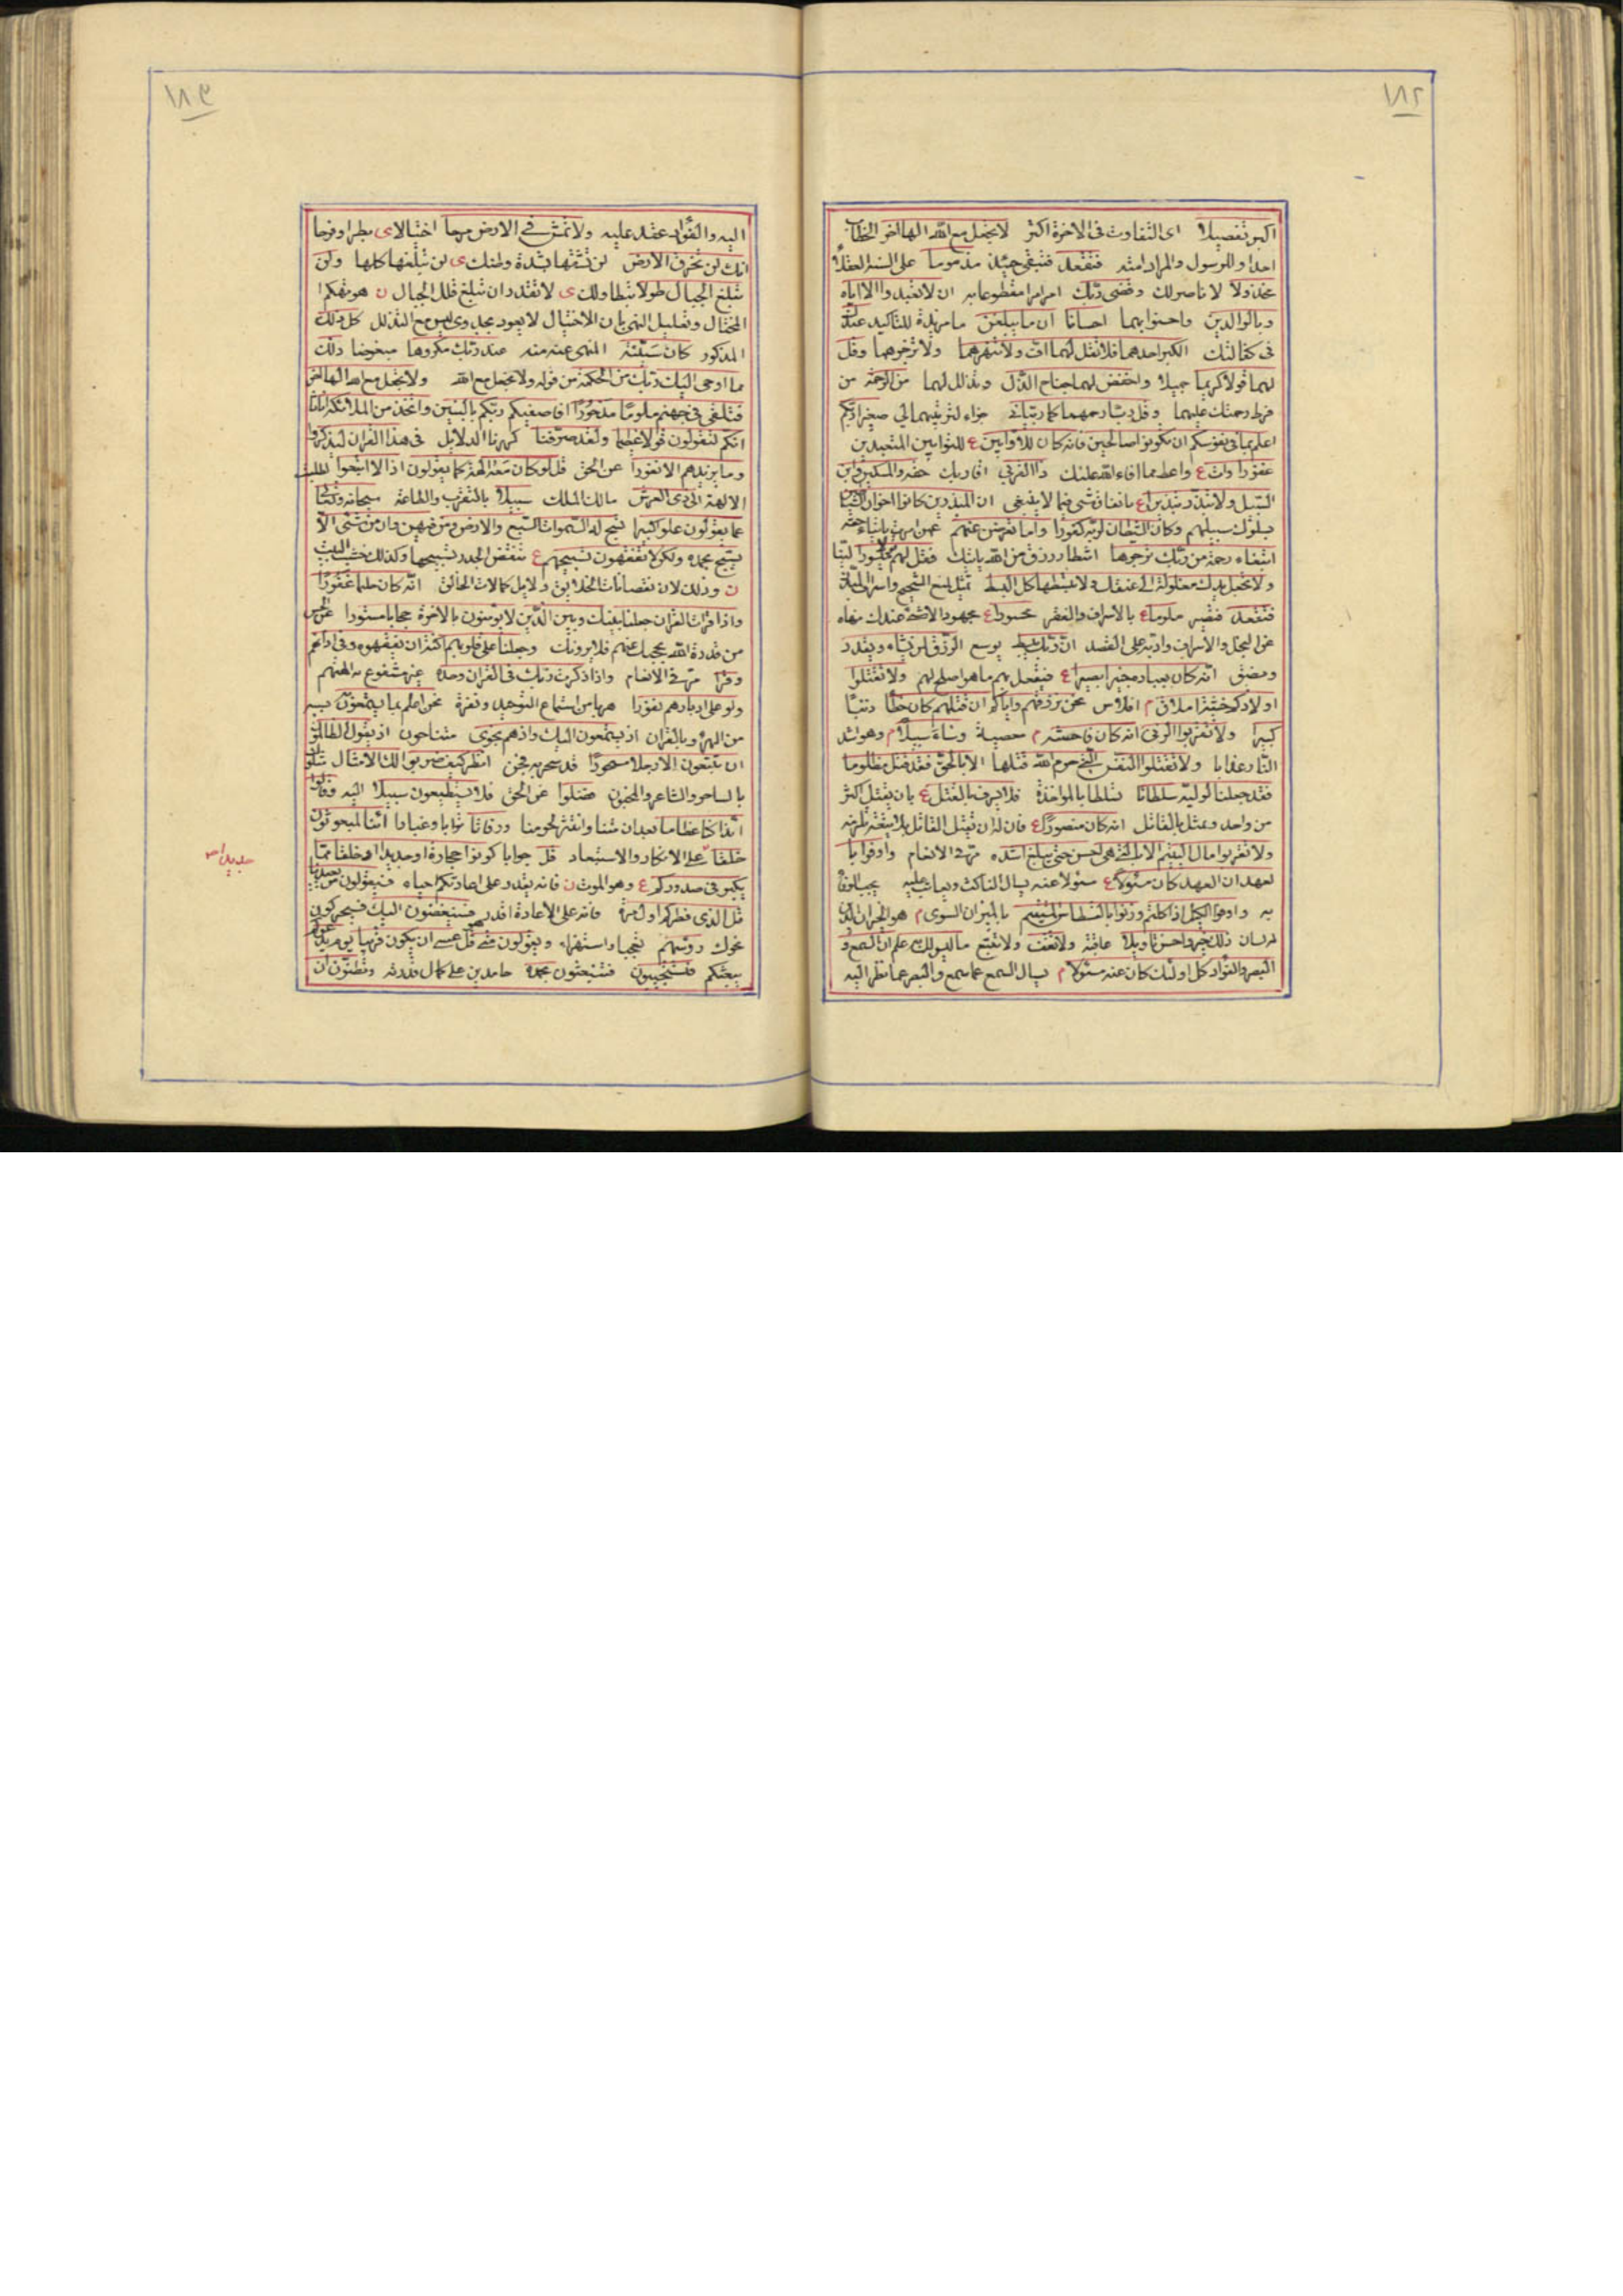 ١٨٢
اكبر تفضيلا اى التفاوت فى الاخرة اكثر لا تجعل مع الله الها اخر الخطاب
احد او للرسول والمراد امته فتقعد فتبقى حينئذ مذموما على السنة العقلاء
مخذولا لا ناصر لك وقضى ربك امر امرا مقطوعا به ان لا تعبدوا الا اياه
وبالوالدين واحسنوا بهما احسانا ان ما يبلغن ما مزيدة للتاكيد عندك
فى كفالتك الكبر احدهما فلا تقل لهما اف ولا تنهرهما ولا تزجرهما وقل
لهما قولا كريما جميلا واخفض لهما جناح الذل وتذلل لهما من الرحمة من
فرط رحمتك عليهما وقل رب ارحمهما كما ربيانى جزاء لتربيتهما الى صغيرا ربكم
اعلم بما فى نفوسكم ان تكونوا صالحين فانه كان للاوابين ع للتوابين المتعبدين
غفورا وات ع واعط مما افاء الله عليك ذا القربى اقاربك حقه والمسكين وابن
السبيل ولا تبذر تبذيرا ع بانفاق شى فيما لا ينبغى ان المبذرين كانوا اخوان الشياطين
بسلوك سبيلهم وكان الشيطان لربه كفورا واما تعرضن عنهم
ابتغاء رحمة من ربك ترجوها انتظار رزق من الله ياتيك فقل لهم قولا ميسورا لينا
ولا تجعل يدك مغلولة الى عنقك ولا تبسطها كل البسط تمثيل لمنع الشحيح واسراف المبذر
فتقعد فتصير ملوما ع بالاسراف والفقر محسورا ع
عن البخل والاسراف وادبه على القصد ان ربك يبسط يوسع الرزق لمن يشاء ويقدر
ويضيق انه كان بعباده خبيرا بصيرا ع فيفعل بهم ما هو اصلح لهم ولا تقتلوا
اولادكم خشية املاق م افلاس نحن نرزقهم واياكم ان قتلهم كان خطا ذنبا
كبيرا ولا تقربوا الزنى انه كان فاحشة م معصية وساء سبيلا م وهو اشد
النار عذابا ولا تقتلوا النفس التى حرم الله قتلها الا بالحق فقد قتل مظلوما
فقد جعلنا لوليه سلطانا تسلطا بالمواخذة فلا يسرف بالقتل ع بان يقتل اكثر
من واحد ويمثل بالقاتل انه كان منصورا ع
ولا تقربوا مال اليتيم الا بالتى هى احسن حتى يبلغ اشده مر فى الانعام واوفوا با
لعهد ان العهد كان مسئولا ع مسئولا عنه يسال الناكث ويعاتب عليه
به واوفوا الكيل اذا كلتم وزنوا بالقسطاس المستقيم بالميزان السوى م
ذلك خير واحسن تاويلا عاقبة ولا تقف ولا تتبع ما ليس لك به علم ان السمع و
البصر والفؤاد كل اولئك كان عنه مسئولا م يسال السمع عما سمع والبصر عما نظر اليه
١٨٣
اليه والفؤاد عقد عليه ولا تمش فى الارض مرحا اختيالا ى بطرا وفرحا
انك لن تخرق الارض لن تشقها بشدة وطئك ى لن تبلغها كلها ولن
تبلغ الجبال طولا بتطاولك ى لا تقدر ان تبلغ قلل الجبال ن هو تهكم ا
المختال وتعليل النهى بان الاختيال لا يعود بجدوى ليس مع التذلل كل ذلك
المذكور كان سيئه المنهى عنه منه عند ربك مكروها مبغوضا ذلك
مما اوحى اليك ربك من الحكمة من قوله ولا تجعل مع الله ولا تجعل مع الله الها اخر
فتلقى فى جهنم ملوما مدحورا افاصفيكم ربكم بالبنين واتخذ من الملائكة اناثا
انكم لتقولون قولا عظيما ولقد صرفنا كررنا الدلايل فى هذا القران ليذكروا
وما يزيدهم الا نفورا عن الحق قل لو كان معه الهة كما يقولون اذا لابتغوا لطلب
الالهة الى ذى العرش مالك الملك سبيلا بالتقرب والطاعة سبحانه وتعالى
عما يقولون علوا كبيرا تسبح له السموات السبع والارض ومن فيهن وان من شئ الا
يسبح بحمده ولكن لا تفقهون تسبيحهم ع
ن وذلك لان نقصانات الخلايق دلايل كمالات الخالق انه كان حليما غفورا
واذا قرات القران جعلنا بينك وبين الذين لا يؤمنون بالاخرة حجابا مستورا
من قدرة الله يحجبك عنهم فلا يرونك وجعلنا على قلوبهم اكنة ان يفقهوه وفى اذانهم
وقرا مر فى الانعام واذا ذكرت ربك فى القران وحده غير مشفوع به الهتهم
ولوا على ادبارهم نفورا هربا من استماع التوحيد ونفرة نحن اعلم بما يستمعون بسببه
من الهزؤ وبالقران اذ يستمعون اليك واذ هم نجوى متناجون اذ يقول الظالمون
ان تتبعون الا رجلا مسحورا قد سحر به فجن انظر كيف ضربوا لك الامثال
بالساحر والشاعر والمجنون فضلوا عن الحق فلا يستطيعون سبيلا اليه وقالوا
ائذا كنا عظاما بعد ان متنا وانتثر لحومنا ورفاتا ترابا وغبارا ائنا لمبعوثون
خلقا على الانكار والاستبعاد قل جوابا كونوا حجارة او حديدا او خلقا مما
يكبر فى صدوركم ع وهو الموت ن فانه يقدر على اعادتكم احياء فسيقولون من يعيدنا
قل الذى فطركم اول مرة فانه على الاعادة اقدر فسينغضون اليك فسيحركون
نحوك رؤسهم تعجبا واستهزاء ويقولون متى هو قل عسى ان يكون قريبا يوم يدعوكم
يبعثكم فتستجيبون فتنبعثون بحمده حامدين على كمال قدرته وتظنون ان
جديدا صح